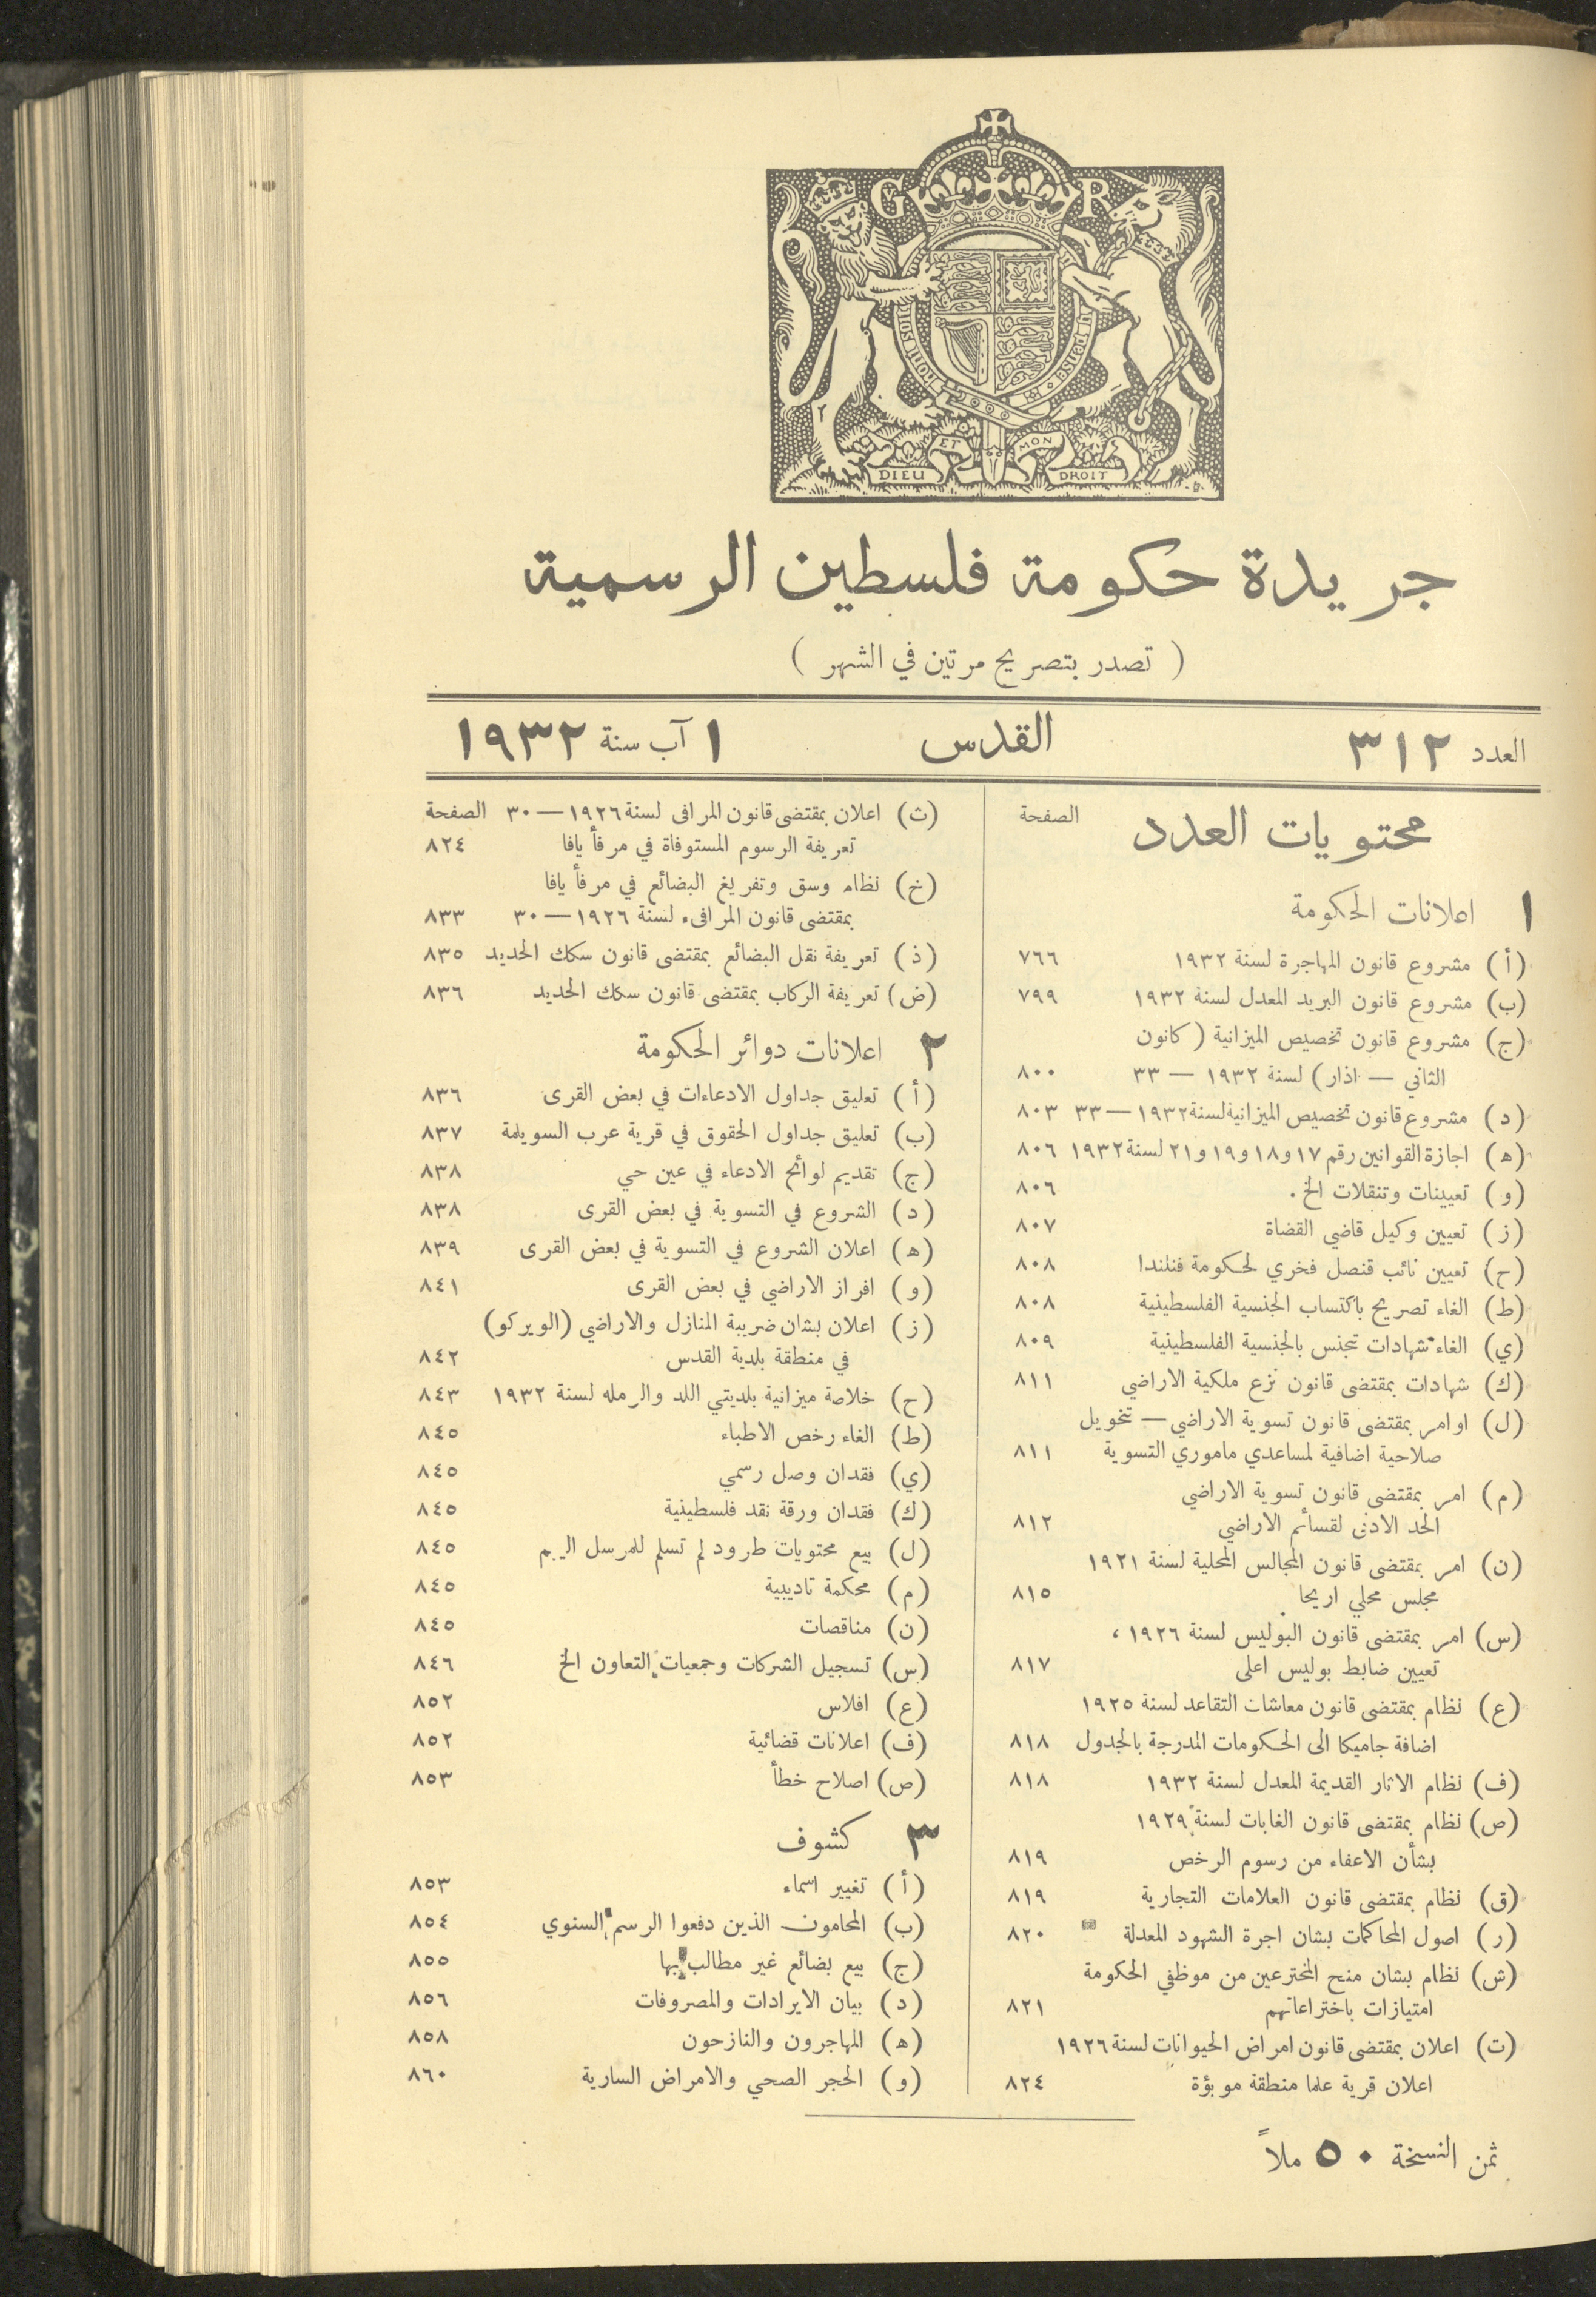 G R
HONI SOIT
Y PENSE
DIEU ET MON DROIT
جريدة حكومة فلسطين الرسمية
( تصدر بتصريح مرتين في الشهر )
العدد ٣١٢ القدس ١ آب سنة ١٩٣٢
محتويات العدد الصفحة
١ اعلانات الحكومة
(أ) مشروع قانون المهاجرة لسنة ١٩٣٢ ٧٦٦
(ب) مشروع قانون البريد المعدل لسنة ١٩٣٢ ٧٩٩
(ج) مشروع قانون تخصيص الميزانية ( كانون
الثاني — اذار) لسنة ١٩٣٢ — ٣٣ ٨٠٠
(د) مشروع قانون تخصيص الميزانية لسنة ١٩٣٢ — ٣٣ ٨٠٣
(ه) اجازة القوانين رقم ١٧ و١٨ و١٩ و٢١ لسنة ١٩٣٢ ٨٠٦
(و) تعيينات وتنقلات الخ. ٨٠٦
(ز) تعيين وكيل قاضي القضاة ٨٠٧
(ح) تعيين نائب قنصل فخري لحكومة فنلندا ٨٠٨
(ط) الغاء تصريح باكتساب الجنسية الفلسطينية ٨٠٨
(ي) الغاء شهادات تجنس بالجنسية الفلسطينية ٨٠٩
(ك) شهادات بمقتضى قانون نزع ملكية الاراضي ٨١١
(ل) اوامر بمقتضى قانون تسوية الاراضي — تخويل
صلاحية اضافية لمساعدي ماموري التسوية ٨١١
(م) امر بمقتضى قانون تسوية الاراضي
الحد الادنى لقسائم الاراضي ٨١٢
(ن) امر بمقتضى قانون المجالس المحلية لسنة ١٩٢١
مجلس محلي اريحا ٨١٥
(س) امر بمقتضى قانون البوليس لسنة ١٩٢٦ ،
تعيين ضابط بوليس اعلى ٨١٧
(ع) نظام بمقتضى قانون معاشات التقاعد لسنة ١٩٢٥
اضافة جاميكا الى الحكومات المدرجة بالجدول ٨١٨
(ف) نظام الاثار القديمة المعدل لسنة ١٩٣٢ ٨١٨
(ص) نظام بمقتضى قانون الغابات لسنة ١٩٢٩
بشأن الاعفاء من رسوم الرخص ٨١٩
(ق) نظام بمقتضى قانون العلامات التجارية ٨١٩
(ر) اصول المحاكمات بشان اجرة الشهود المعدلة ٨٢٠
(ش) نظام بشان منح المخترعين من موظفي الحكومة
امتيازات باختراعاتهم ٨٢١
(ت) اعلان بمقتضى قانون امراض الحيوانات لسنة ١٩٢٦
اعلان قرية علما منطقة موبؤة ٨٢٤
(ث) اعلان بمقتضى قانون المرافى لسنة ١٩٢٦ — ٣٠ الصفحة
تعريفة الرسوم المستوفاة في مرفأ يافا ٨٢٤
(خ) نظام وسق وتفريغ البضائع في مرفأ يافا
بمقتضى قانون المرافىء لسنة ١٩٢٦ — ٣٠ ٨٣٣
(ذ) تعريفة نقل البضائع بمقتضى قانون سكك الحديد ٨٣٥
(ض) تعريفة الركاب بمقتضى قانون سكك الحديد ٨٣٦
٢ اعلانات دوائر الحكومة
(أ) تعليق جداول الادعاءات في بعض القرى ٨٣٦
(ب) تعليق جداول الحقوق في قرية عرب السويلمة ٨٣٧
(ج) تقديم لوائح الادعاء في عين حي ٨٣٨
(د) الشروع في التسوية في بعض القرى ٨٣٨
(ه) اعلان الشروع في التسوية في بعض القرى ٨٣٩
(و) افراز الاراضي في بعض القرى ٨٤١
(ز) اعلان بشان ضريبة المنازل والاراضي (الويركو)
في منطقة بلدية القدس ٨٤٢
(ح) خلاصة ميزانية بلديتي اللد والرمله لسنة ١٩٣٢ ٨٤٣
(ط) الغاء رخص الاطباء ٨٤٥
(ي) فقدان وصل رسمي ٨٤٥
(ك) فقدان ورقة نقد فلسطينية ٨٤٥
(ل) بيع محتويات طرود لم تسلم للمرسل اليهم ٨٤٥
(م) محكمة تاديبية ٨٤٥
(ن) مناقصات ٨٤٥
(س) تسجيل الشركات وجمعيات التعاون الخ ٨٤٦
(ع) افلاس ٨٥٢
(ف) اعلانات قضائية ٨٥٢
(ص) اصلاح خطأ ٨٥٣
٣ كشوف
(أ) تغيير اسماء ٨٥٣
(ب) المحامون الذين دفعوا الرسم السنوي ٨٥٤
(ج) بيع بضائع غير مطالب بها ٨٥٥
(د) بيان الايرادات والمصروفات ٨٥٦
(ه) المهاجرون والنازحون ٨٥٨
(و) الحجر الصحي والامراض السارية ٨٦٠
ثمن النسخة ٥٠ ملاً